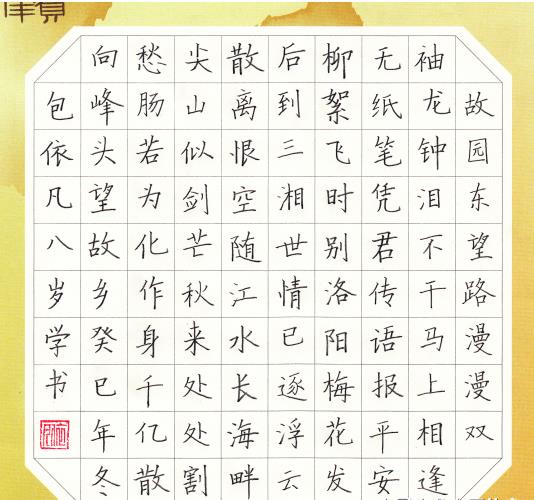 故园东望路漫漫双
袖龙钟泪不干马上相逢
无纸笔凭君传语报平安
柳絮飞时别洛阳梅花发
后到三湘世情已逐浮云
散离恨空随江水长海畔
尖山似剑芒秋来处处割
愁肠若为化作身千亿散
向峰头望故乡癸巳年冬
包依凡八岁学书